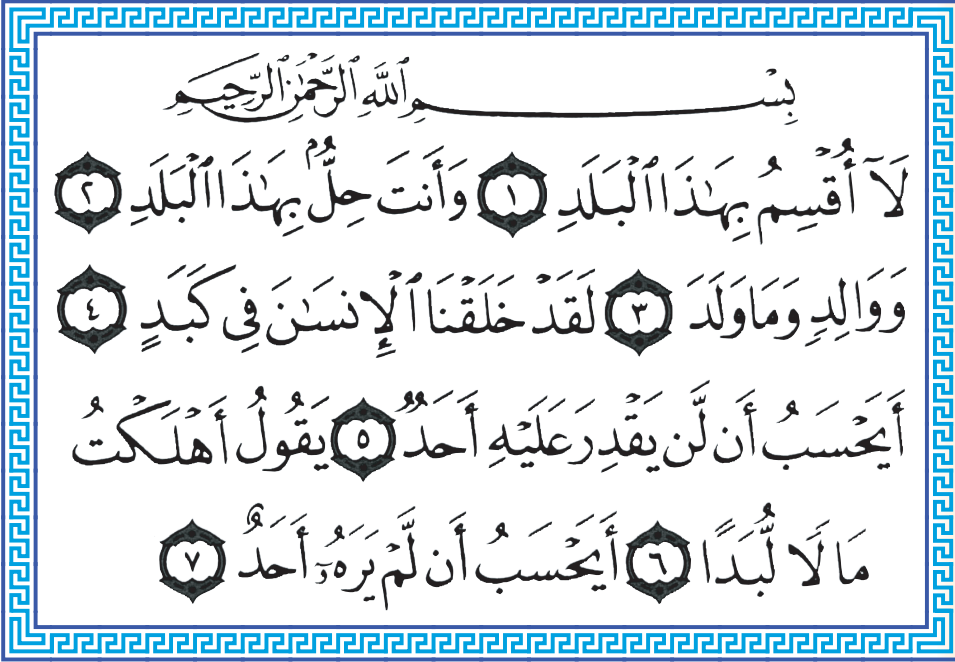 بِسْمِ ٱللَّهِ ٱلرَّحْمَٰنِ ٱلرَّحِيمِ
لَآ أُقْسِمُ بِهَٰذَا ٱلْبَلَدِ ١ وَأَنتَ حِلٌّۢ بِهَٰذَا ٱلْبَلَدِ ٢
وَوَالِدٍ وَمَا وَلَدَ ٣ لَقَدْ خَلَقْنَا ٱلْإِنسَٰنَ فِى كَبَدٍ ٤
أَيَحْسَبُ أَن لَّن يَقْدِرَ عَلَيْهِ أَحَدٌ ٥ يَقُولُ أَهْلَكْتُ
مَالًا لُّبَدًا ٦ أَيَحْسَبُ أَن لَّمْ يَرَهُۥٓ أَحَدٌ ٧